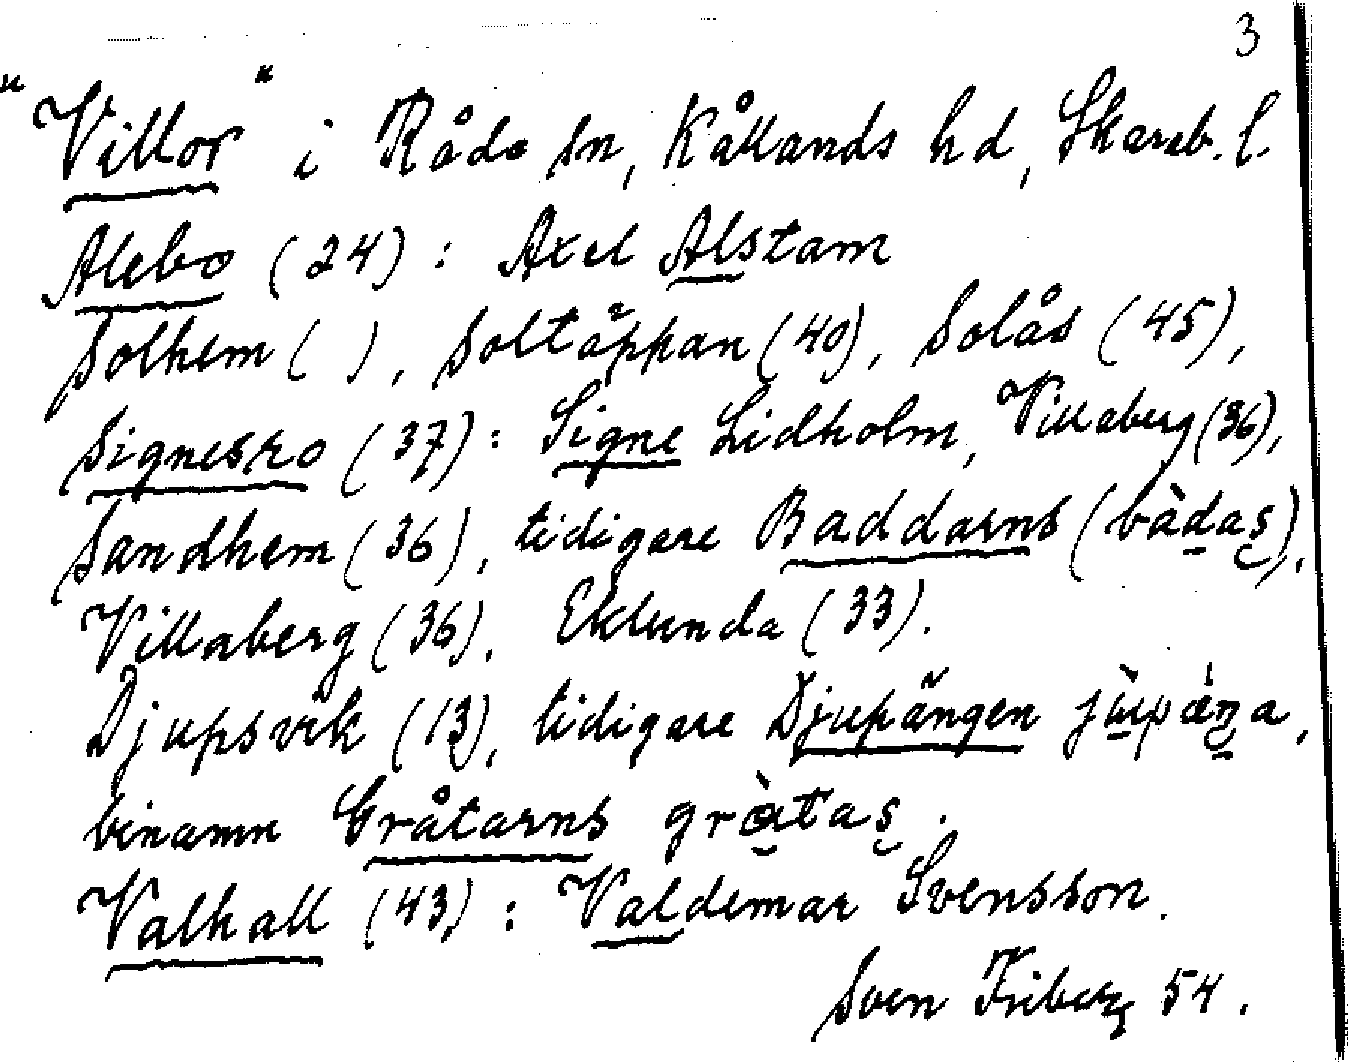 3
"Villor" i Råda sn, Kållands hd, Skarab. l.
Alebo (24): Axel Alstam
Solhem ( ), Soltäppan (40), Solås (45),
Signesro (37): Signe Lidholm, Villaberg (36),
Sandhem (36), tidigare Baddarns (bàdas̨).
Villaberg (36). Eklunda (33).
Djupsvik (13), tidigare Djupängen
binamn Gråtarns
Valhall (43): Valdemar Svensson.
Sven Friberg 54.